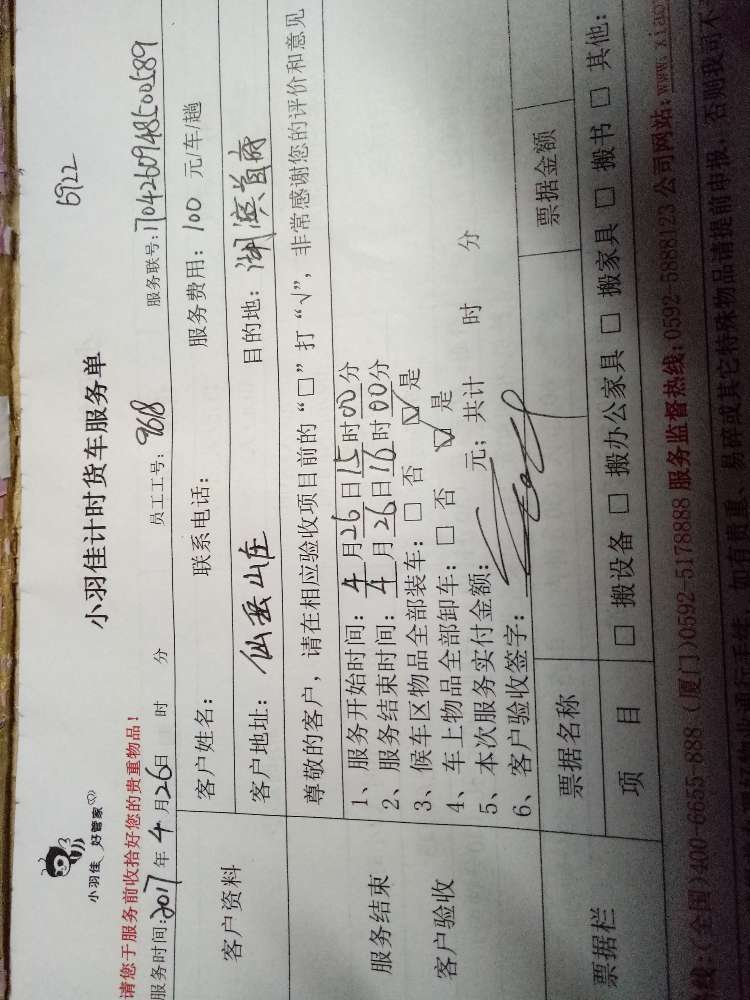 小羽佳 好管家
5922
小羽佳计时货车服务单
请您于服务前收拾好您的贵重物品!
服务时间:2017年4月26日 时 分 员工工号:9618 服务联号:1704260948500589
客户资料
客户姓名: 联系电话: 服务费用:100 元/车/趟
客户地址:仙岳山庄 目的地:湖滨首府
尊敬的客户,请在相应验收项目前的“□”打“√”,非常感谢您的评价和意见
服务结束
客户验收
1、服务开始时间:4月26日15时00分
2、服务结束时间:4月26日16时00分
3、候车区物品全部装车:□ 否 ☑ 是
4、车上物品全部卸车:□ 否 ☑ 是
5、本次服务实付金额: 元;共计 时 分
6、客户验收签字:
票据栏
票据名称 票据金额
项 目 □ 搬设备 □ 搬办公家具 □ 搬家具 □ 搬书 □ 其他:
线:(全国)400-6655-888 (厦门)0592-5178888 服务监督热线:0592-5888123 公司网站:www.xiao
如有贵重、易碎或其它特殊物品请提前申报,否则我司不